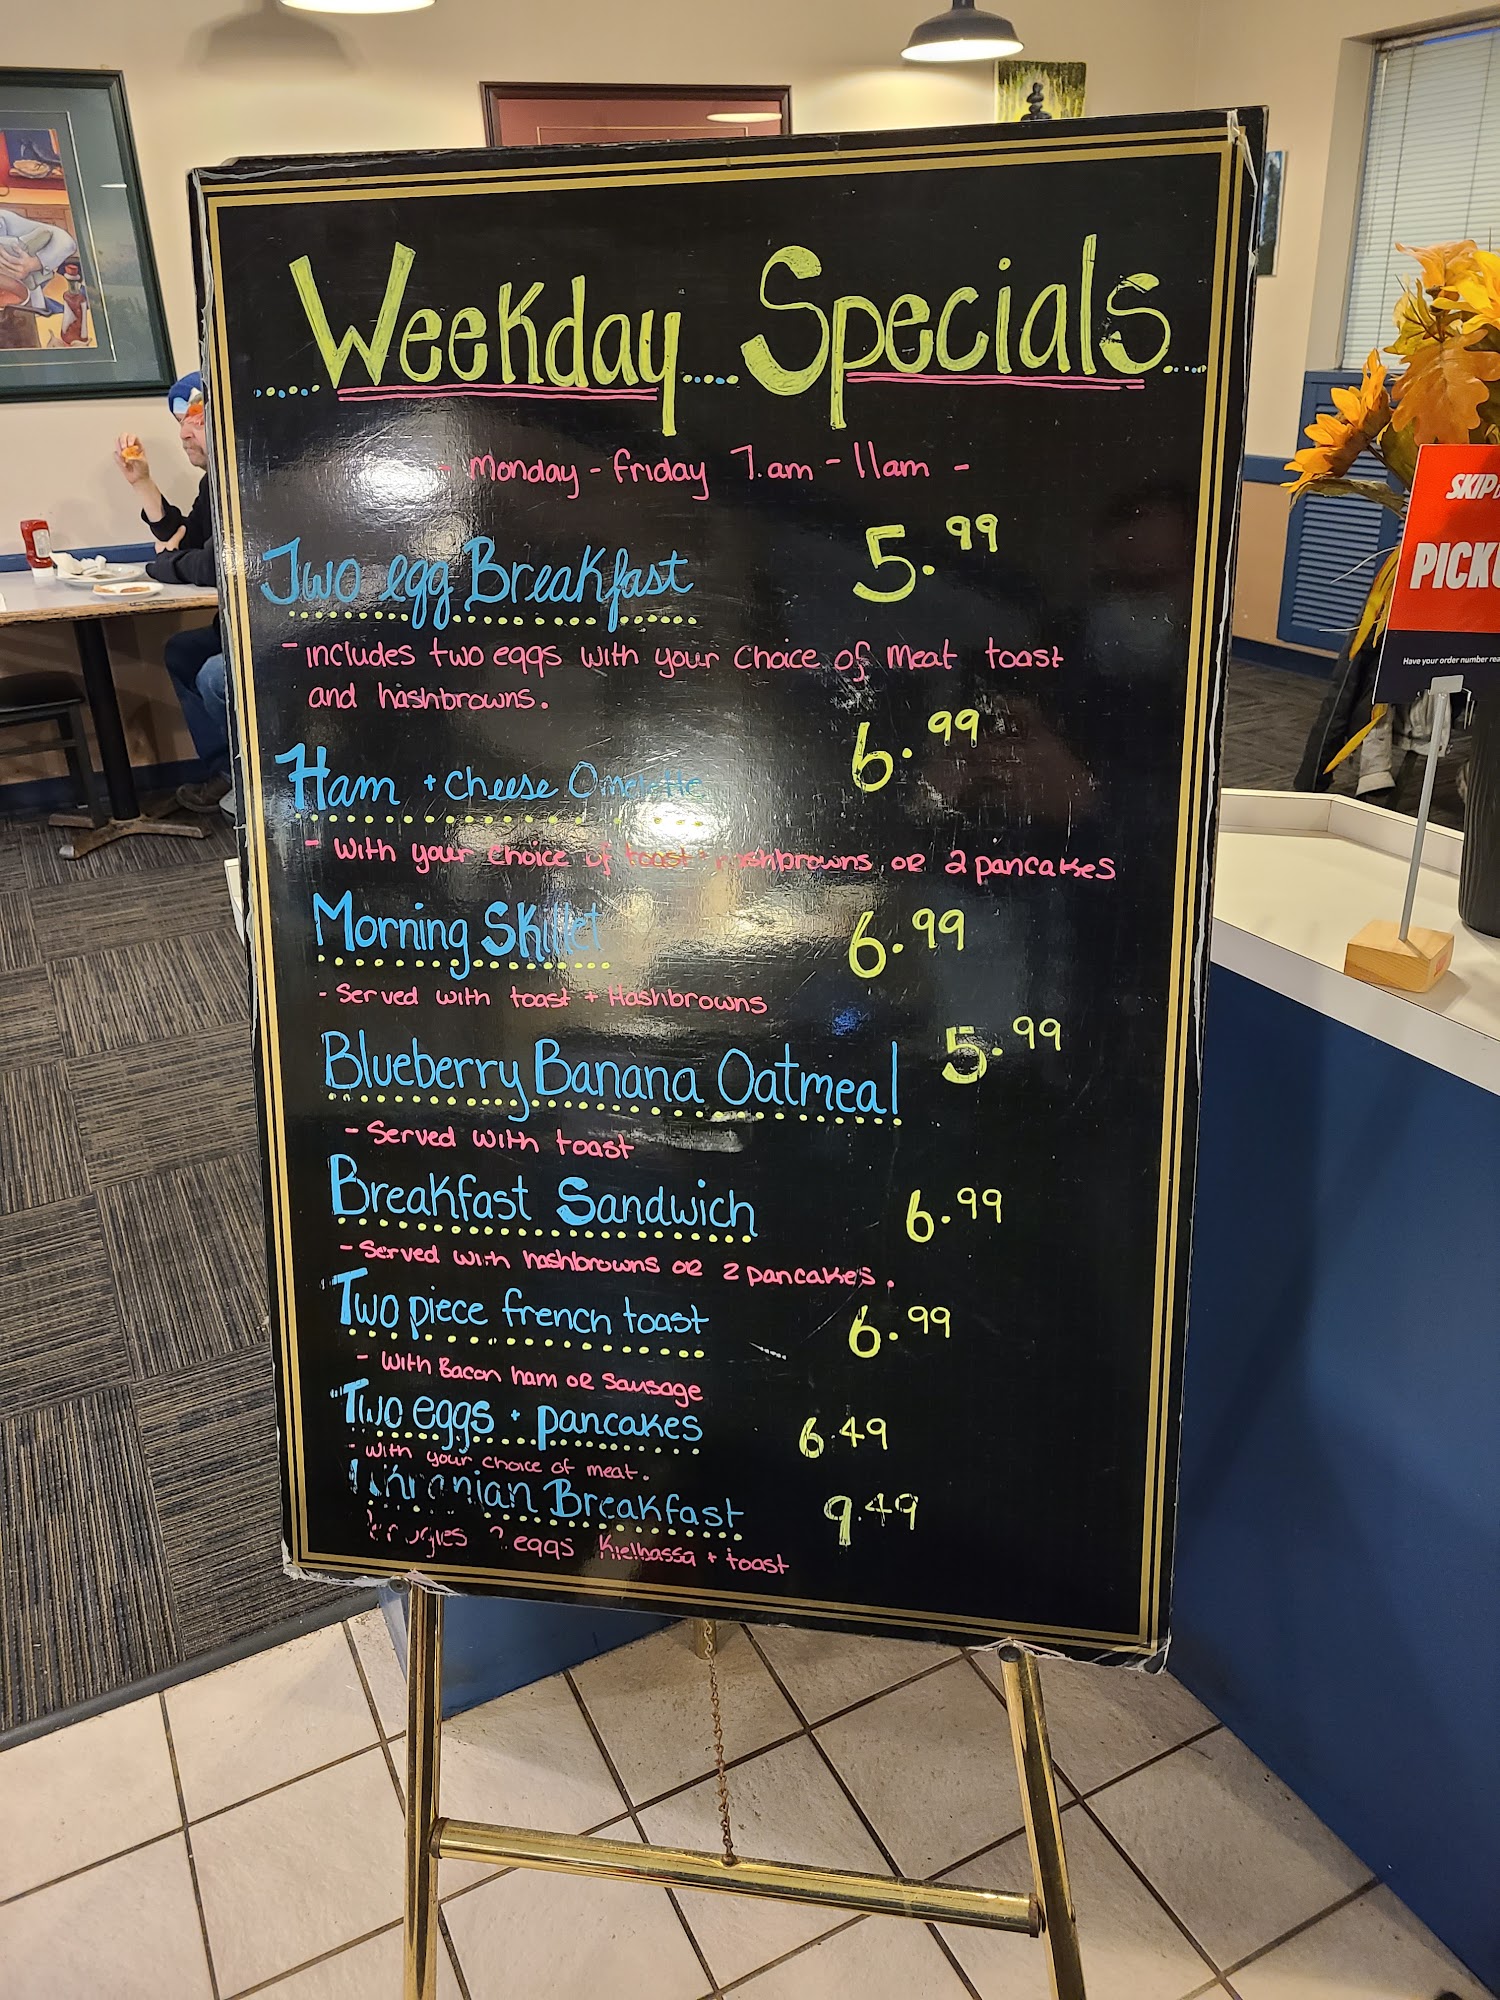 Weekday Specials
- Monday - Friday 7am - 11am -
Two egg Breakfast 5.99
- includes two eggs with your choice of meat toast
and hashbrowns.
Ham + Cheese Omelette 6.99
- with your choice of toast + hashbrowns or 2 pancakes
Morning Skillet 6.99
- Served with toast + Hashbrowns
Blueberry Banana Oatmeal 5.99
- Served with toast
Breakfast Sandwich 6.99
- Served with hashbrowns or 2 pancakes.
Two piece french toast 6.99
- with Bacon ham or Sausage
Two eggs + pancakes 6.49
- with your choice of meat.
Ukranian Breakfast 9.49
eggs Kielbassa + toast
SKIP
PICK
Have your order number